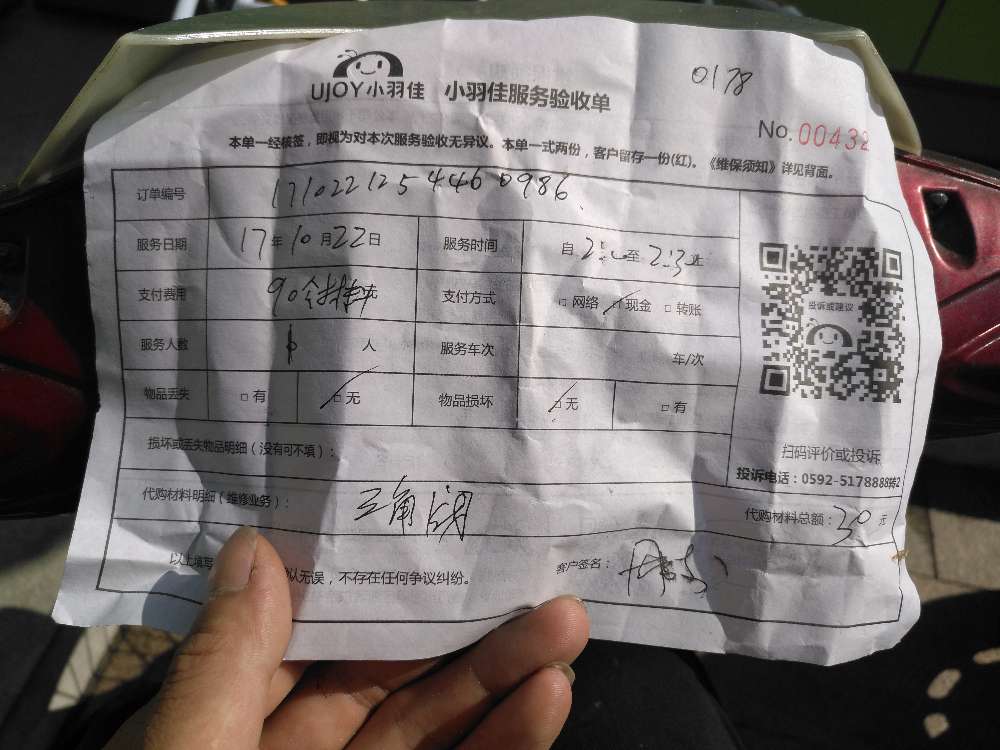 0178
UJOY小羽佳 小羽佳服务验收单
No.00432
本单一经核签，即视为对本次服务验收无异议。本单一式两份，客户留存一份(红)。《维保须知》详见背面。
订单编号 1710221254460986
服务日期 17年10月22日 服务时间 自 至
支付费用 90 元 支付方式 □网络 □现金 □转账
服务人数 1 人 服务车次 车/次
物品丢失 □有 □无 物品损坏 □无 □有
投诉或建议
损坏或丢失物品明细（没有可不填）：
扫码评价或投诉
投诉电话：0592-5178888转2
代购材料明细（维修业务）： 三角阀 代购材料总额：30元
以上填写 认无误，不存在任何争议纠纷。 客户签名：